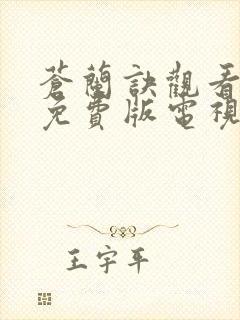 蒼蘭訣觀看
免費版電視
王宇平